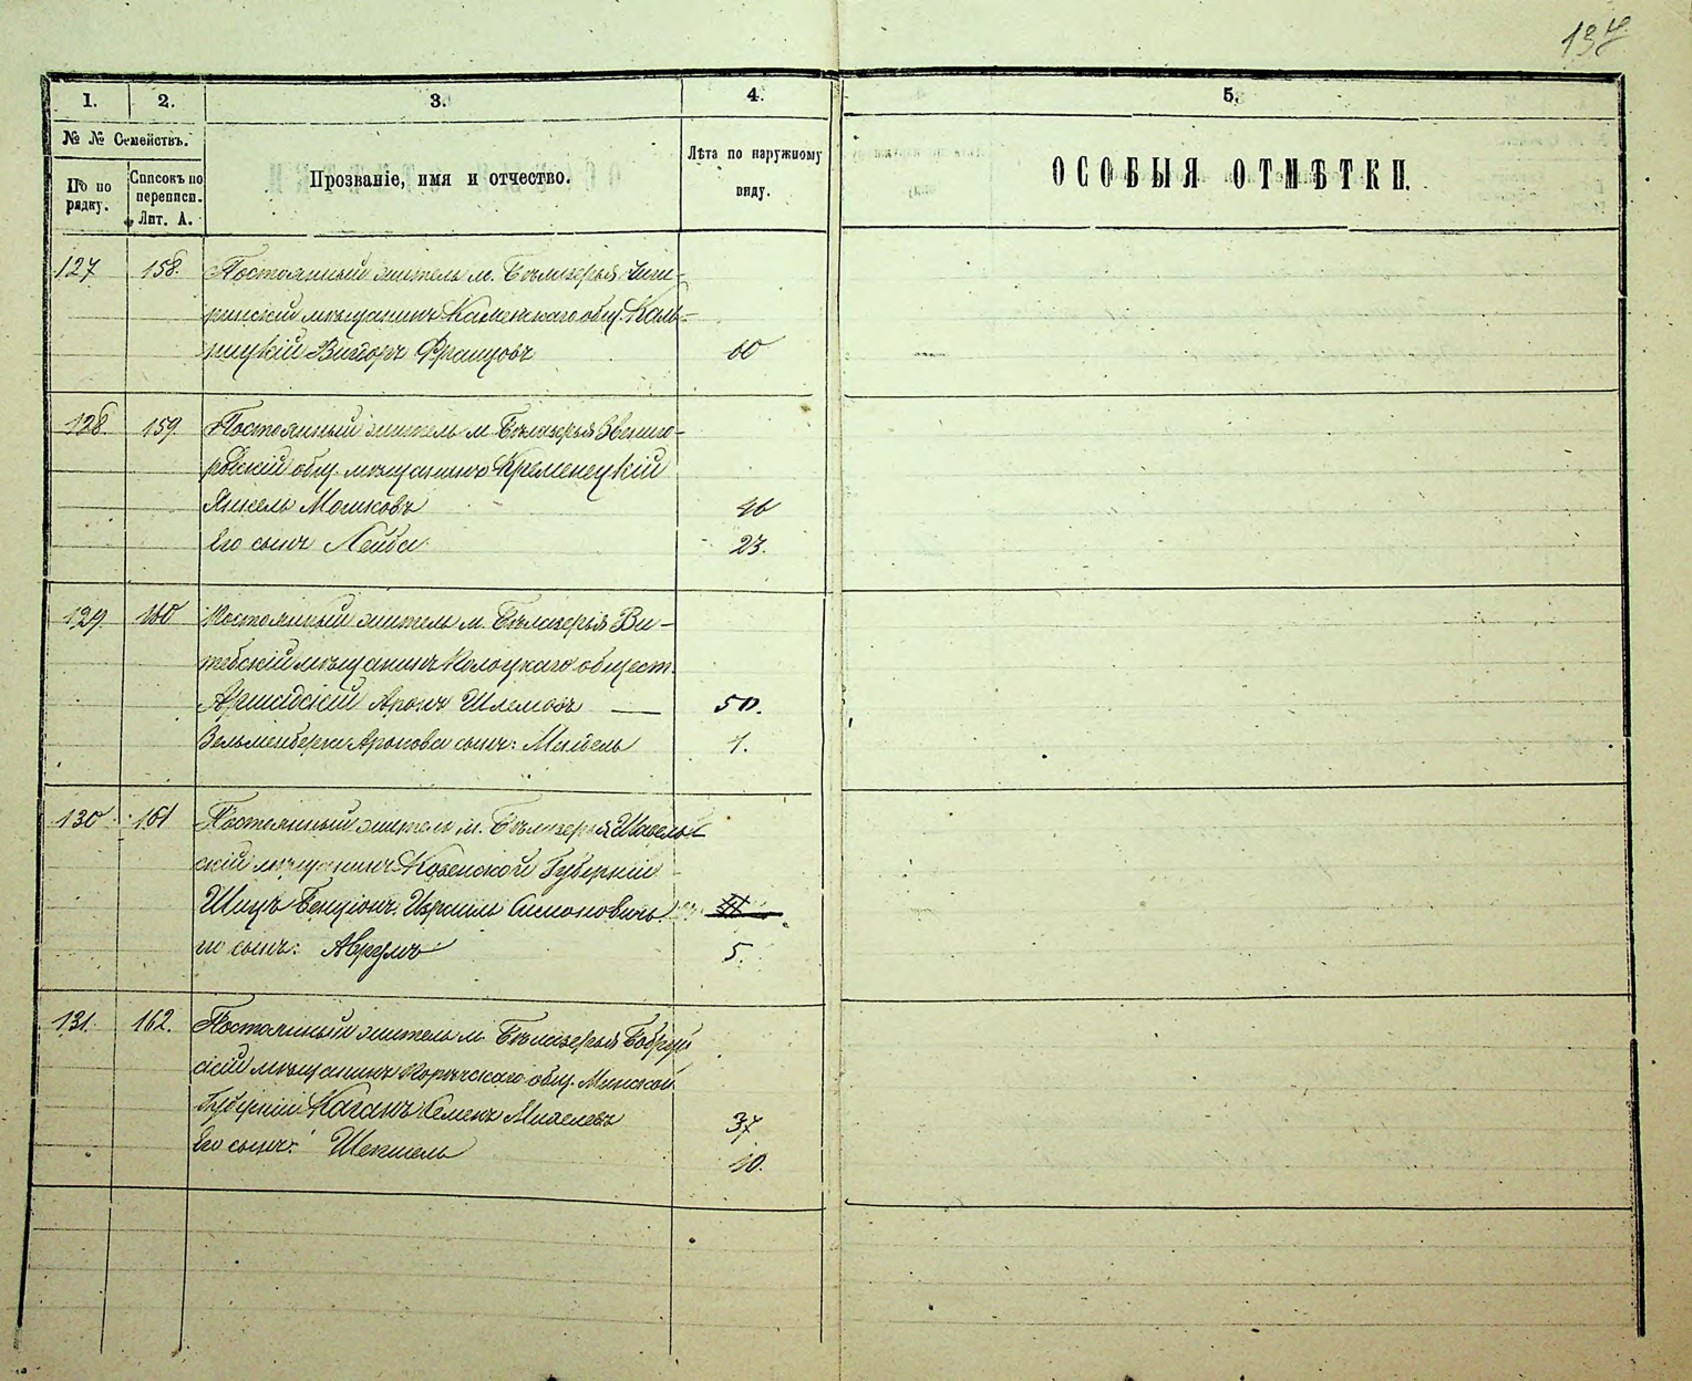 137
1. 2. 3. 4. 5.
№ № Семействъ.
По по рядку.
Списокъ по переписи. Лит. А.
Прозваніе, имя и отчество.
Лѣта по наружному виду.
ОСОБЫЯ ОТМѢТКИ.
127 158. Постоянный житель м. Бѣлизерья Чиги-
ринскій мѣщанинъ Каменскаго общ.
Францовъ 60
128. 159. Постоянный житель м. Бѣлизерья Звениго-
родскій общ. мѣщанинъ Кременецкій
Янкель Мошковъ 46
Его сынъ Лейба 23.
129. 160 Постоянный житель м. Бѣлизерья Ви-
тебскій мѣщанинъ Полоцкаго общест.
Аронъ Шлемовъ — 50.
Аронова сынъ: 1.
130. 161 Постоянный житель м. Бѣлизерья Шавель-
скій мѣщанинъ Ковенской Губерніи
Шицъ Бенціонъ Израиль Симоновичъ
го сынъ: Аврумъ 5.
131. 162. Постоянный житель м. Бѣлизерья Бобруй
скій мѣщанинъ общ. Минской
Губерніи Каганъ 37
Его сынъ: 10.